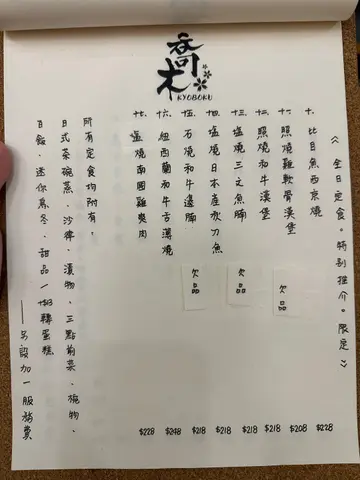 喬木
KYOBOKU
《全日定食。特別推介。限定》
十. 比目魚西京燒 $228
十一. 照燒雞軟骨漢堡 $208
欠品
十二. 照燒和牛漢堡 $218
十三. 鹽燒三文魚腩 $218
欠品
十四. 鹽燒日本產秋刀魚 $218
十五. 石燒和牛邊腩 $218
欠品
十六. 紐西蘭和牛舌薄燒 $248
十七. 鹽燒南國雞爽肉 $228
所有定食均附有,
日式茶碗蒸、沙律、漬物、三點前菜、物、
白飯、迷你烏冬、甜品 轉蛋糕
——另設加一服務費